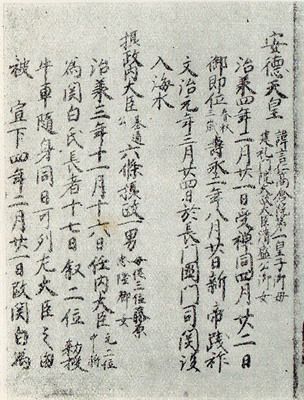 安德天皇 諱言仁高倉院第一皇子御母
建礼門院太政大臣清盛公御女
治承四年二月廿一日受禅同四月廿二日
御即位 春秋三歳 壽永二年八月廿日新帝践祚
文治元年三月廿四日於長門國門司関没
入海水
摂政内大臣 基通公 六條摂政一男 母従三位藤原
忠隆卿女
治承三年十一月十六日任内大臣 元二位中将
為関白氏長者十七日叙二位勅授
牛車随身同日可列左大臣之由
被宣下四年二月廿一日改関白為